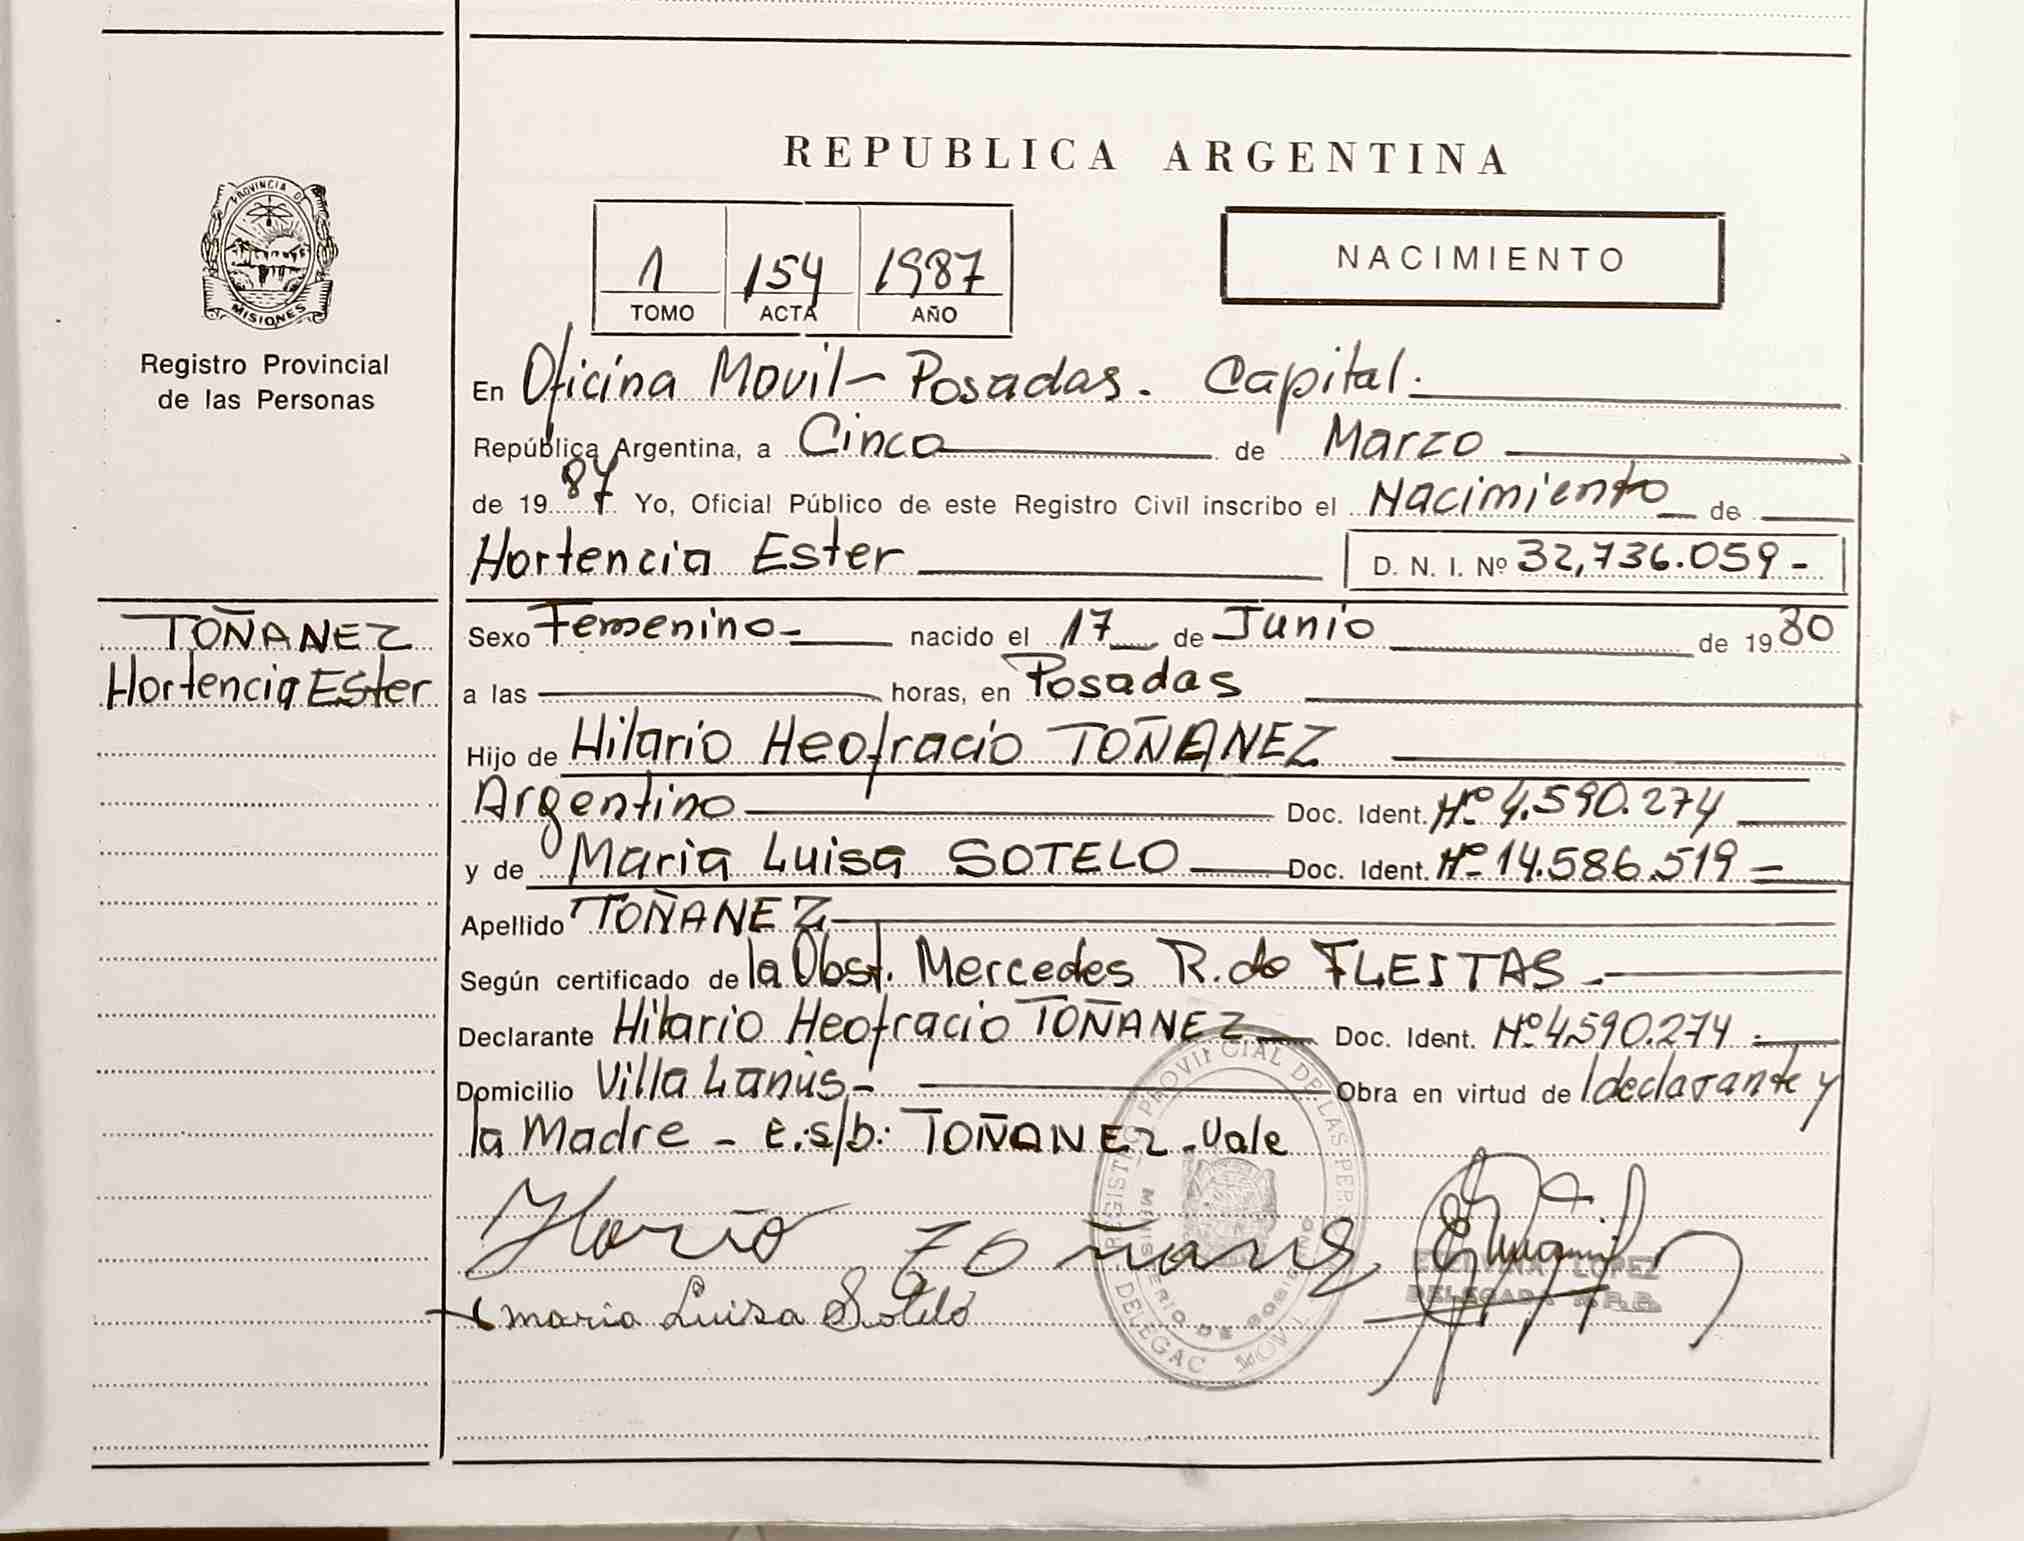 REPUBLICA ARGENTINA
PROVINCIA DE
MISIONES
Registro Provincial
de las Personas
1 154 1987
TOMO ACTA AÑO
NACIMIENTO
En Oficina Movil - Posadas. Capital.
República Argentina, a Cinco de Marzo
de 1987 Yo, Oficial Público de este Registro Civil inscribo el Nacimiento de
Hortencia Ester D. N. I. Nº 32,736.059-
TOÑANEZ
Hortencia Ester
Sexo Femenino- nacido el 17 de Junio de 1980
a las horas, en Posadas
Hijo de Hilario Heofracio TOÑANEZ
Argentino Doc. Ident. Nº 4.590.274
y de Maria Luisa SOTELO Doc. Ident. Nº 14.586.519
Apellido TOÑANEZ
Según certificado de la Obst. Mercedes R. de FLEITAS.-
Declarante Hilario Heofracio TOÑANEZ Doc. Ident. Nº 4.590.274.
Domicilio Villa Lanús- Obra en virtud de l declarante y
la Madre - E.s/b: TOÑANEZ. Vale
maria Luisa Sotelo
LOPEZ
DELEGADA
REGISTRO PROVINCIAL DE LAS PERS
MINISTERIO DE GOBIERNO
DELEGAC MOVIL